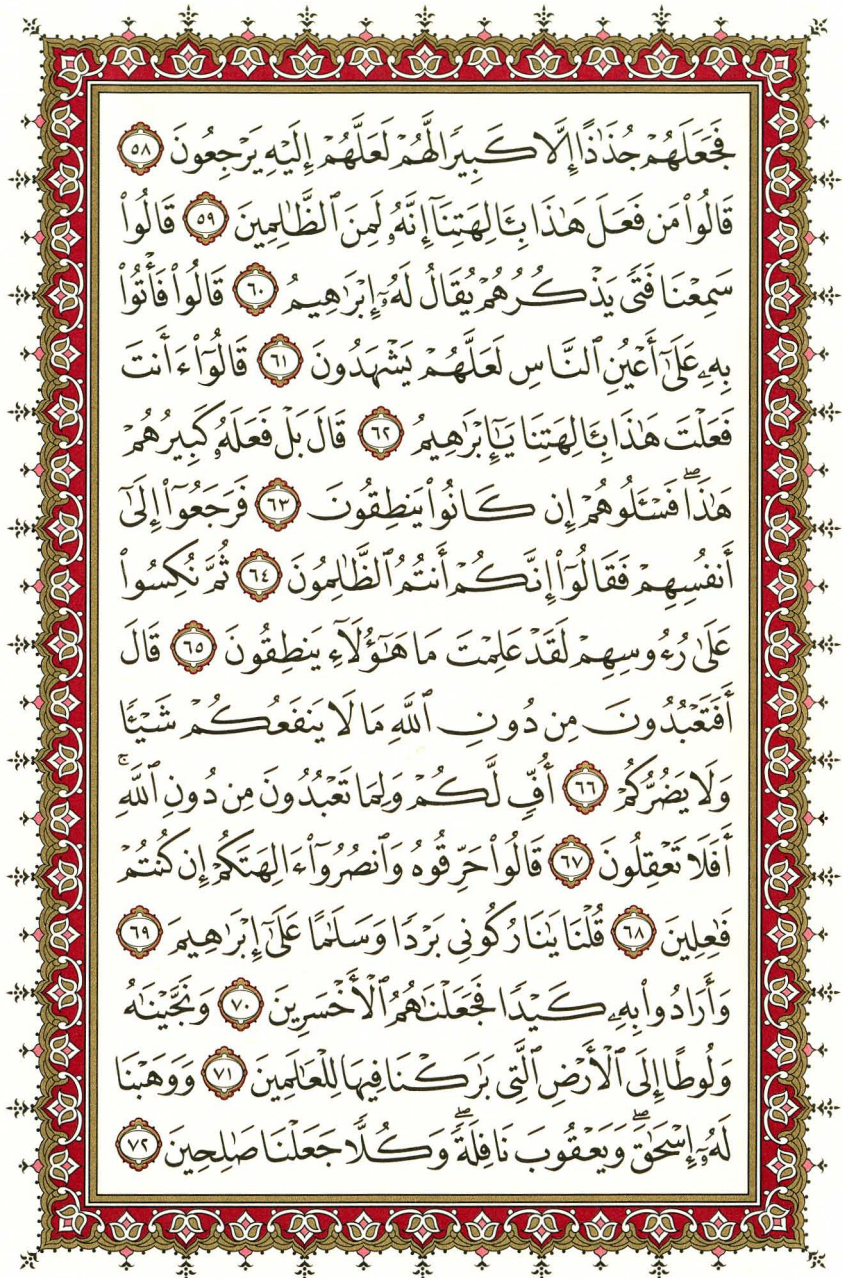 فَجَعَلَهُمْ جُذَٰذًا إِلَّا كَبِيرًا لَّهُمْ لَعَلَّهُمْ إِلَيْهِ يَرْجِعُونَ ٥٨
قَالُوا۟ مَن فَعَلَ هَٰذَا بِـَٔالِهَتِنَآ إِنَّهُۥ لَمِنَ ٱلظَّٰلِمِينَ ٥٩ قَالُوا۟
سَمِعْنَا فَتًى يَذْكُرُهُمْ يُقَالُ لَهُۥٓ إِبْرَٰهِيمُ ٦٠ قَالُوا۟ فَأْتُوا۟
بِهِۦ عَلَىٰٓ أَعْيُنِ ٱلنَّاسِ لَعَلَّهُمْ يَشْهَدُونَ ٦١ قَالُوٓا۟ ءَأَنتَ
فَعَلْتَ هَٰذَا بِـَٔالِهَتِنَا يَٰٓإِبْرَٰهِيمُ ٦٢ قَالَ بَلْ فَعَلَهُۥ كَبِيرُهُمْ
هَٰذَا فَسْـَٔلُوهُمْ إِن كَانُوا۟ يَنطِقُونَ ٦٣ فَرَجَعُوٓا۟ إِلَىٰٓ
أَنفُسِهِمْ فَقَالُوٓا۟ إِنَّكُمْ أَنتُمُ ٱلظَّٰلِمُونَ ٦٤ ثُمَّ نُكِسُوا۟
عَلَىٰ رُءُوسِهِمْ لَقَدْ عَلِمْتَ مَا هَٰٓؤُلَآءِ يَنطِقُونَ ٦٥ قَالَ
أَفَتَعْبُدُونَ مِن دُونِ ٱللَّهِ مَا لَا يَنفَعُكُمْ شَيْـًٔا
وَلَا يَضُرُّكُمْ ٦٦ أُفٍّ لَّكُمْ وَلِمَا تَعْبُدُونَ مِن دُونِ ٱللَّهِ ۚ
أَفَلَا تَعْقِلُونَ ٦٧ قَالُوا۟ حَرِّقُوهُ وَٱنصُرُوٓا۟ ءَالِهَتَكُمْ إِن كُنتُمْ
فَٰعِلِينَ ٦٨ قُلْنَا يَٰنَارُ كُونِى بَرْدًا وَسَلَٰمًا عَلَىٰٓ إِبْرَٰهِيمَ ٦٩
وَأَرَادُوا۟ بِهِۦ كَيْدًا فَجَعَلْنَٰهُمُ ٱلْأَخْسَرِينَ ٧٠ وَنَجَّيْنَٰهُ
وَلُوطًا إِلَى ٱلْأَرْضِ ٱلَّتِى بَٰرَكْنَا فِيهَا لِلْعَٰلَمِينَ ٧١ وَوَهَبْنَا
لَهُۥٓ إِسْحَٰقَ ۖ وَيَعْقُوبَ نَافِلَةً ۖ وَكُلًّا جَعَلْنَا صَٰلِحِينَ ٧٢